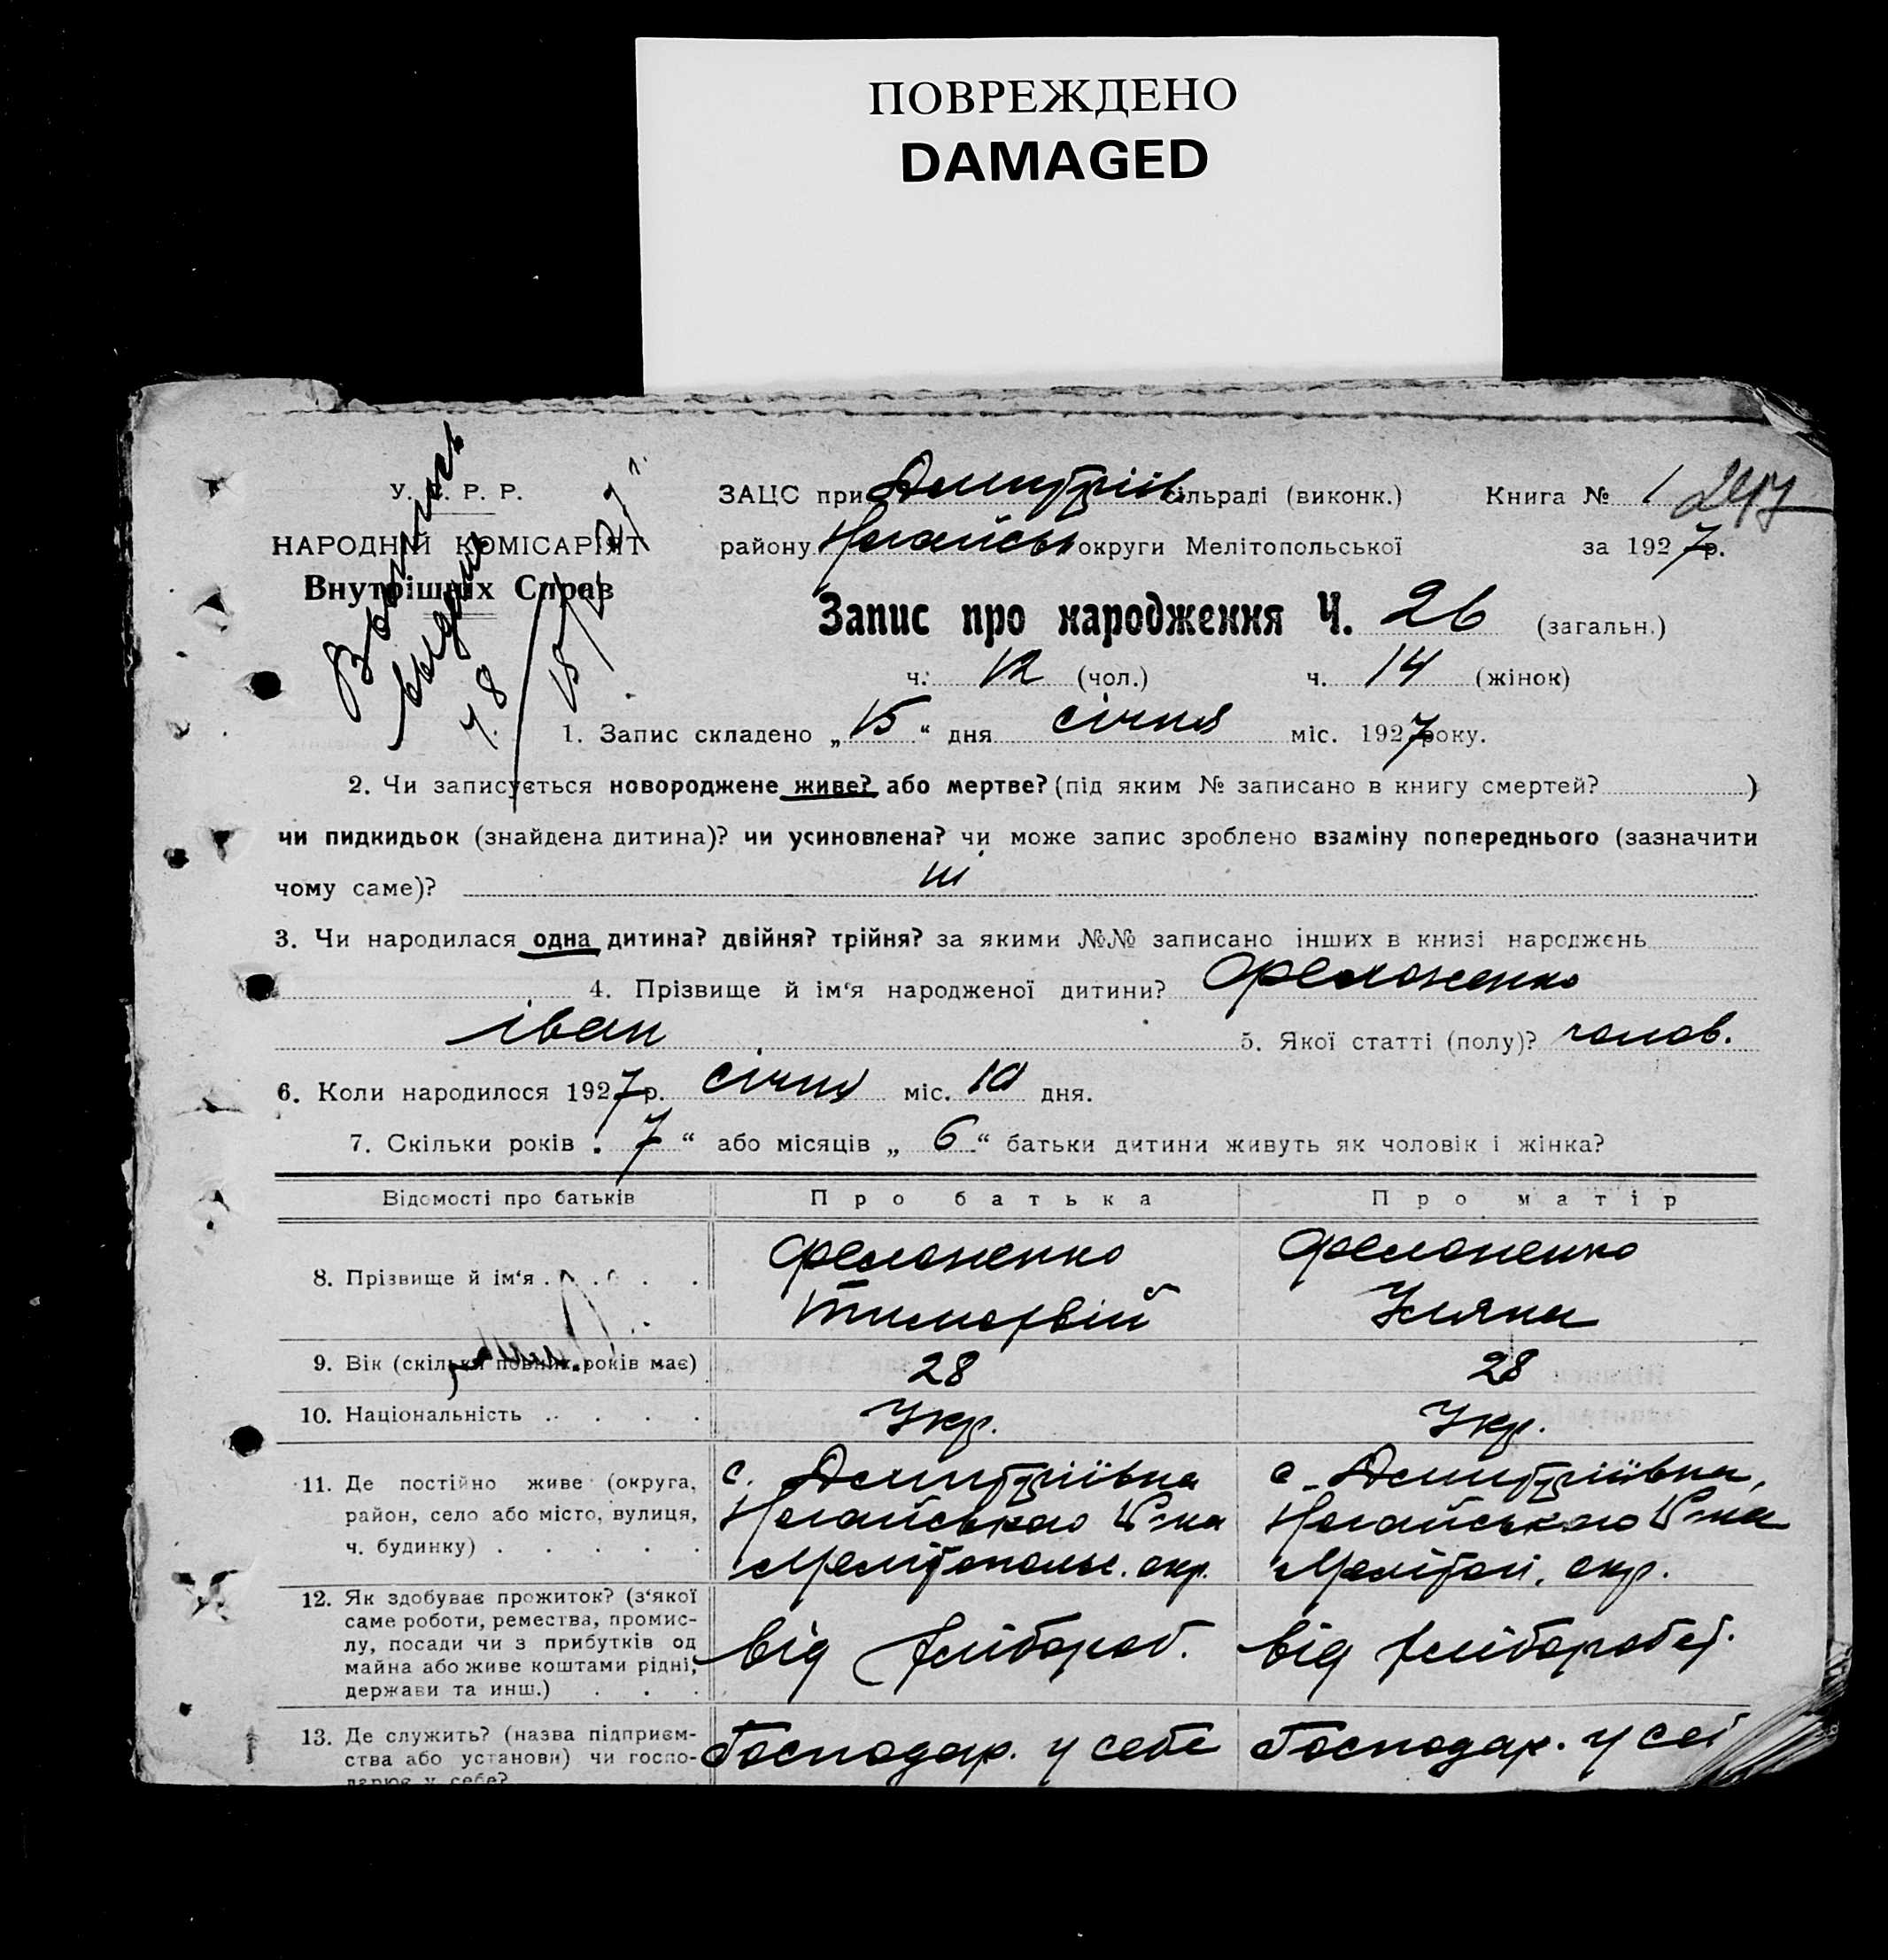 ПОВРЕЖДЕНО
DAMAGED
У. С. Р. Р.
НАРОДНІЙ КОМІСАРІЯТ
Внутрішніх Справ
Выпись
выдана
ЗАЦС при Дмитріїв. сільраді (виконк.) Книга № 1
району Ногайськ округи Мелітопольської за 1927 р.
Запис про народження Ч. 26 (загальн.)
ч. 12 (чол.) ч. 14 (жінок)
1. Запис складено „15“ дня січня міс. 1927 року.
2. Чи записується новороджене живе? або мертве? (під яким № записано в книгу смертей? )
чи пидкидьок (знайдена дитина)? чи усиновлена? чи може запис зроблено взаміну попереднього (зазначити
чому саме)? ні
3. Чи народилася одна дитина? двійня? трійня? за якими №№ записано інших в книзі народжень
4. Прізвище й ім‘я народженої дитини?
Іван 5. Якої статті (полу)? чолов.
6. Коли народилося 1927 р. січня міс. 10 дня.
7. Скільки років „7“ або місяців „6“ батьки дитини живуть як чоловік і жінка?
Відомості про батьків Про батька Про матір
8. Прізвище й ім‘я
Тимофвій Уляна
9. Вік (скільки повних років має) 28 28
10. Національність Укр. Укр.
11. Де постійно живе (округа, район, село або місто, вулиця, ч. будинку)
с. Дмитріївка с. Дмитріївка,
Ногайського Р-на Ногайського Р-на
Мелітопольс. окр. Мелітоп. окр.
12. Як здобуває прожиток? (з‘якої
саме роботи, ремества, промис-
лу, посади чи з прибутків од
майна або живе коштами рідні,
держави та инш.)
від хлібороб. від хлібороб.
13. Де служить? (назва підприєм-
ства або установи) чи госпо-
дарює у себе?
Господар. у себе Господар. у се